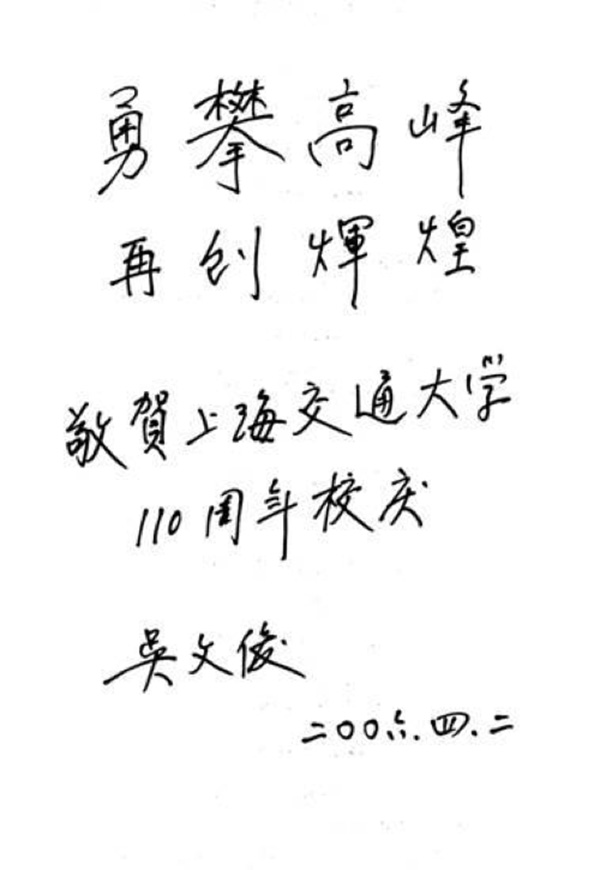 勇攀高峰
再创輝煌
敬賀上海交通大学
110周年校庆
吳文俊
二〇〇六.四.二